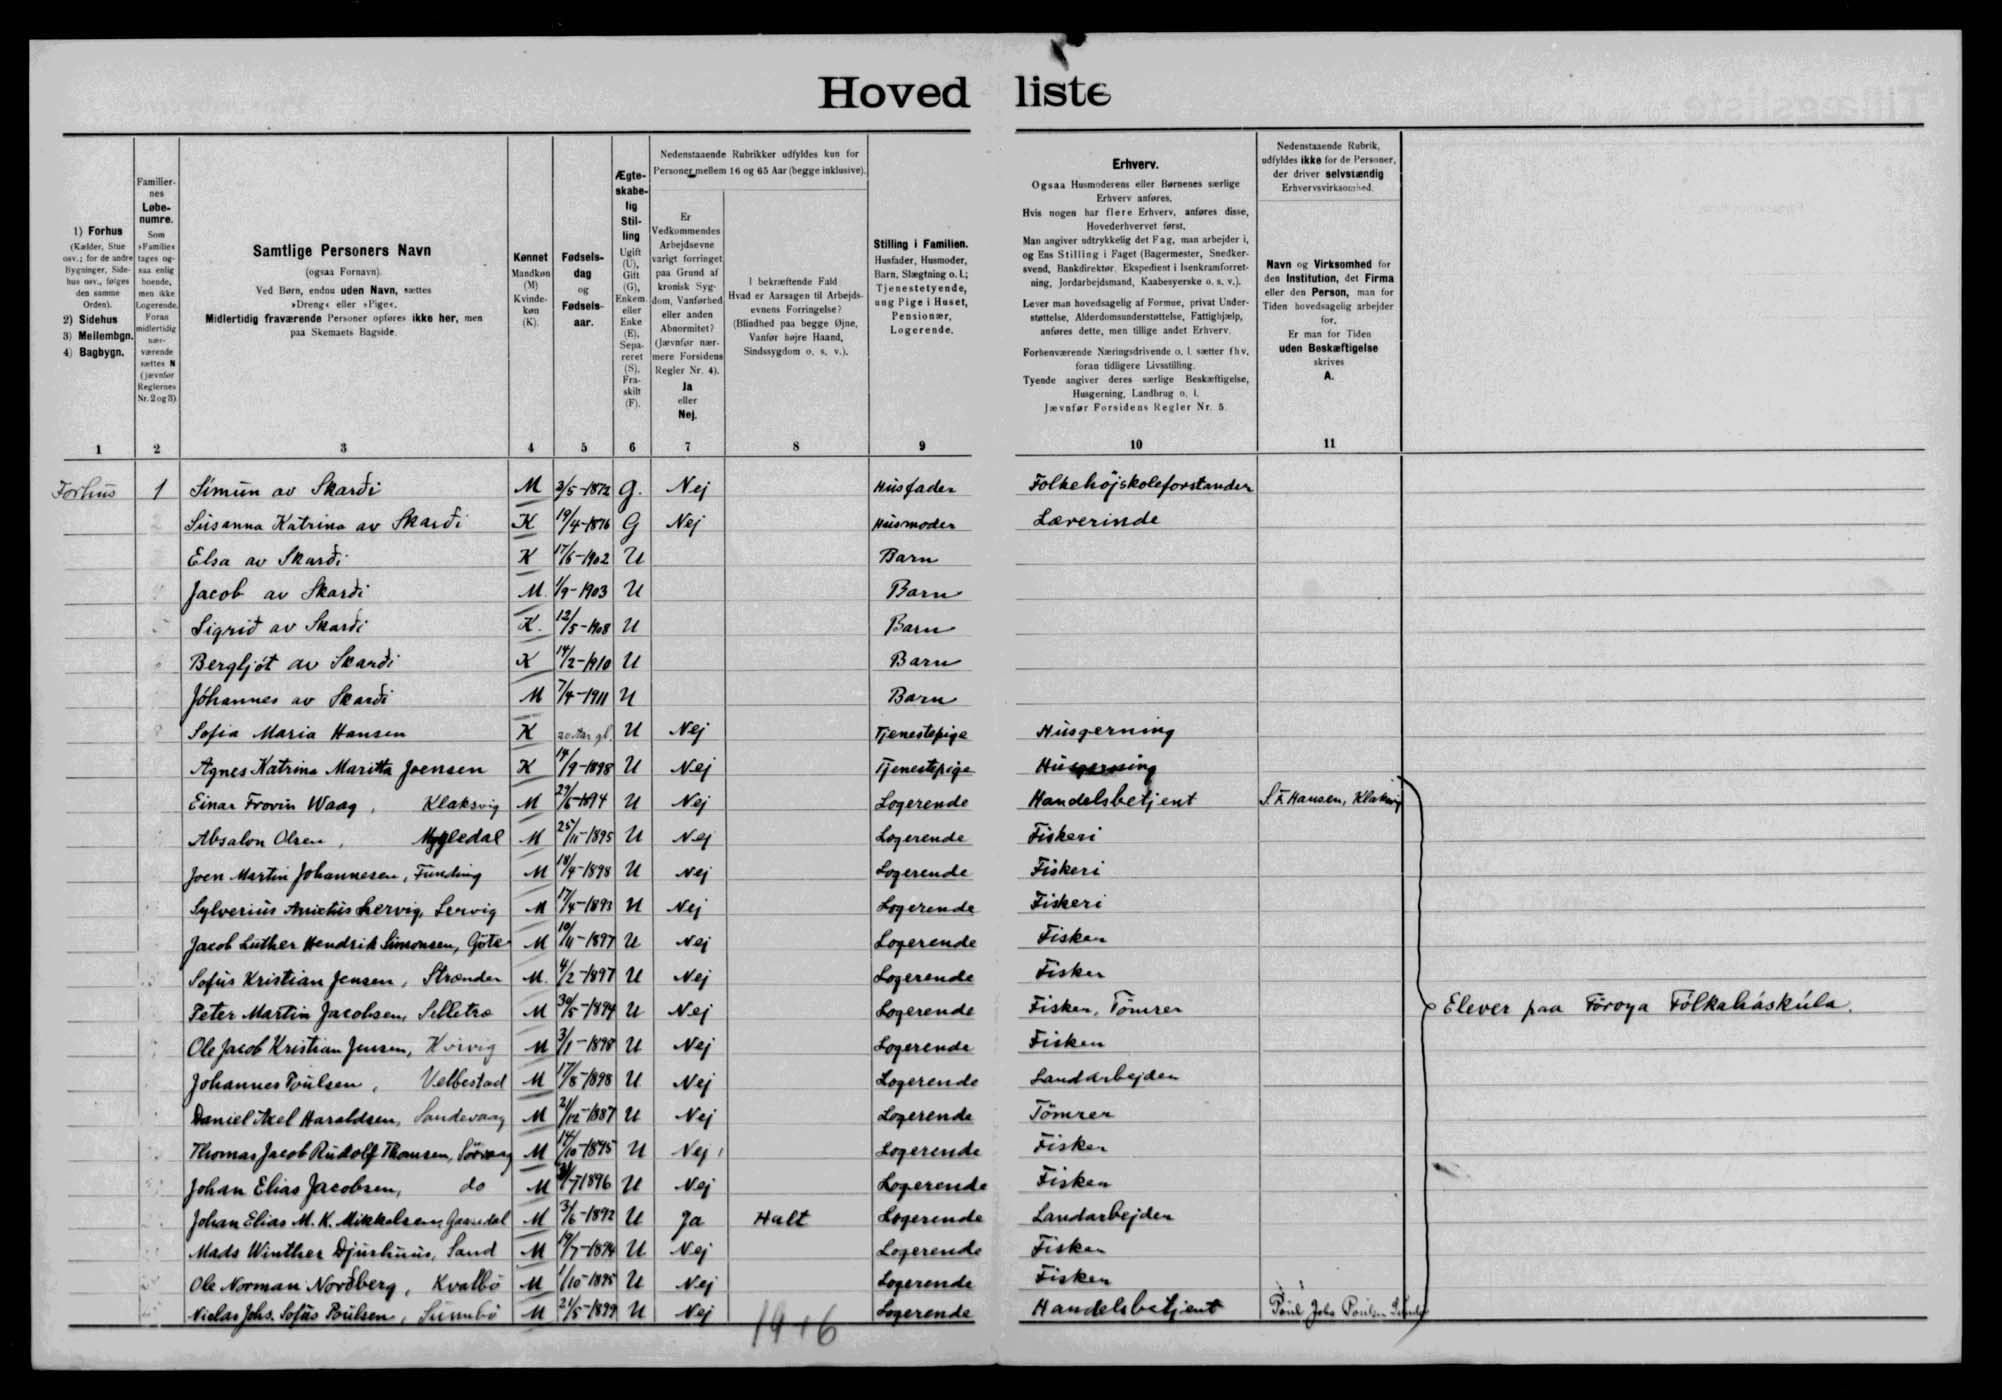 Hovedliste
1) Forhus
(Kælder, Stue
osv.; for de andre
Bygninger, Side-
hus osv., følges
den samme
Orden).
2) Sidehus
3) Mellembgn.
4) Bagbygn.
Familier-
nes
Løbe-
numre.
Som
»Familie«
tages og-
saa enlig
boende,
men ikke
Logerende.
Foran
midlertidig
nær-
værende
sættes N
(jævnfør
Reglernes
Nr. 2 og 3)
Samtlige Personers Navn
(ogsaa Fornavn).
Ved Børn, endnu uden Navn, sættes
»Dreng« eller »Pige«.
Midlertidig fraværende Personer opføres ikke her, men
paa Skemaets Bagside.
Kønnet
Mandkøn
(M)
Kvinde-
køn
(K).
Fødsels-
dag
og
Fødsels-
aar.
Ægte-
skabe-
lig
Stil-
ling
Ugift
(U),
Gift
(G),
Enkem.
eller
Enke
(E),
Sepa-
reret
(S),
Fra-
skilt
(F).
Nedenstaaende Rubrikker udfyldes kun for
Personer mellem 16 og 65 Aar (begge inklusive).
Er
Vedkommendes
Arbejdsevne
varigt forringet
paa Grund af
kronisk Syg-
dom, Vanførhed
eller anden
Abnormitet?
(Jævnfør nær-
mere Forsidens
Regler Nr. 4).
Ja
eller
Nej.
I bekræftende Fald
Hvad er Aarsagen til Arbejds-
evnens Forringelse?
(Blindhed paa begge Øjne,
Vanfør højre Haand,
Sindssygdom o. s. v.).
Stilling i Familien.
Husfader, Husmoder,
Barn, Slægtning o. l.;
Tjenestetyende,
ung Pige i Huset,
Pensionær,
Logerende.
Erhverv.
Ogsaa Husmoderens eller Børnenes særlige
Erhverv anføres.
Hvis nogen har flere Erhverv, anføres disse,
Hovederhvervet først.
Man angiver udtrykkelig det Fag, man arbejder i,
og Ens Stilling i Faget (Bagermester, Snedker-
svend, Bankdirektør, Ekspedient i Isenkramforret-
ning, Jordarbejdsmand, Kaabesyerske o. s. v.).
Lever man hovedsagelig af Formue, privat Under-
støttelse, Alderdomsunderstøttelse, Fattighjælp,
anføres dette, men tillige andet Erhverv.
Forhenværende Næringsdrivende o. l. sætter fhv.
foran tidligere Livsstilling.
Tyende angiver deres særlige Beskæftigelse,
Husgerning, Landbrug o. l.
Jævnfør Forsidens Regler Nr. 5.
Nedenstaaende Rubrik,
udfyldes ikke for de Personer,
der driver selvstændig
Erhvervsvirksomhed.
Navn og Virksomhed for
den Institution, det Firma
eller den Person, man for
Tiden hovedsagelig arbejder
for.
Er man for Tiden
uden Beskæftigelse
skrives
A.
1 2 3 4 5 6 7 8 9 10 11
Forhus 1 Símun av Skarði M 3/5-1872 G. Nej Husfader Folkehöjskoleforstander
Súsanna Katrina av Skarði K 19/4-1876 G Nej Husmoder Lærerinde
Elsa av Skarði K 17/6-1902 U Barn
Jacob av Skarði M. 1/9-1903 U Barn
Sigrið av Skarði K. 12/5-1908 U Barn
Bergljót av Skarði K 14/2-1910 U Barn
Jóhannes av Skarði M 7/4-1911 U Barn
Sofia Maria Hansen K 20 Aar gl. U Nej Tjenestepige Husgerning
Agnes Katrina Maritta Joensen K 14/9-1898 U Nej Tjenestepige Husgerning
Einar Frovin Waag, Klaksvig M 29/6-1894 U Nej Logerende Handelsbetjent S. F. Hansen, Klaksvig
Absalon Olsen, Mygledal M 25/11-1895 U Nej Logerende Fiskeri
Joen Martin Johannesen, Funding M 18/4-1898 U Nej Logerende Fiskeri
Sylverius Servig, Servig M U Nej Logerende Fiskeri
Jacob Luther Hendrik Simonsen, Göte M 10/11-1897 U Nej Logerende Fisker
Sofus Kristian Jensen, Strænder M. 4/2-1897 U Nej Logerende Fisker
Peter Martin Jacobsen, Selletræ M 30/5-1894 U Nej Logerende Fisker, Tömrer Elever paa Föroya Fólkaháskúla.
Ole Jacob Kristian Jensen, Kvivig M 3/1-1898 U Nej Logerende Fisker
Johannes Poulsen, Velbestad M 17/8-1898 U Nej Logerende Landarbejder
Daniel Axel Haraldsen, Sandevaag M 21/12-1887 U Nej Logerende Tömrer
Thomas Jacob Rudolf Thomsen, Sörvaag M 14/10-1895 U Nej Logerende Fisker
Johan Elias Jacobsen, do M U Nej Logerende Fisker
Johan Elias M. K. Mikkelsen, Gaasedal M 3/6-1892 U Ja Halt Logerende Landarbejder
Mads Winther Djurhuus, Sand M 19/7-1894 U Nej Logerende Fisker
Ole Norman Norðberg, Kvalbö M 1/10-1895 U Nej Logerende Fisker
Niclas Johs. Sofus Poulsen, Sumbö M 21/5-1899 U Nej Logerende Handelsbetjent Poul Johs Poulsen
1916